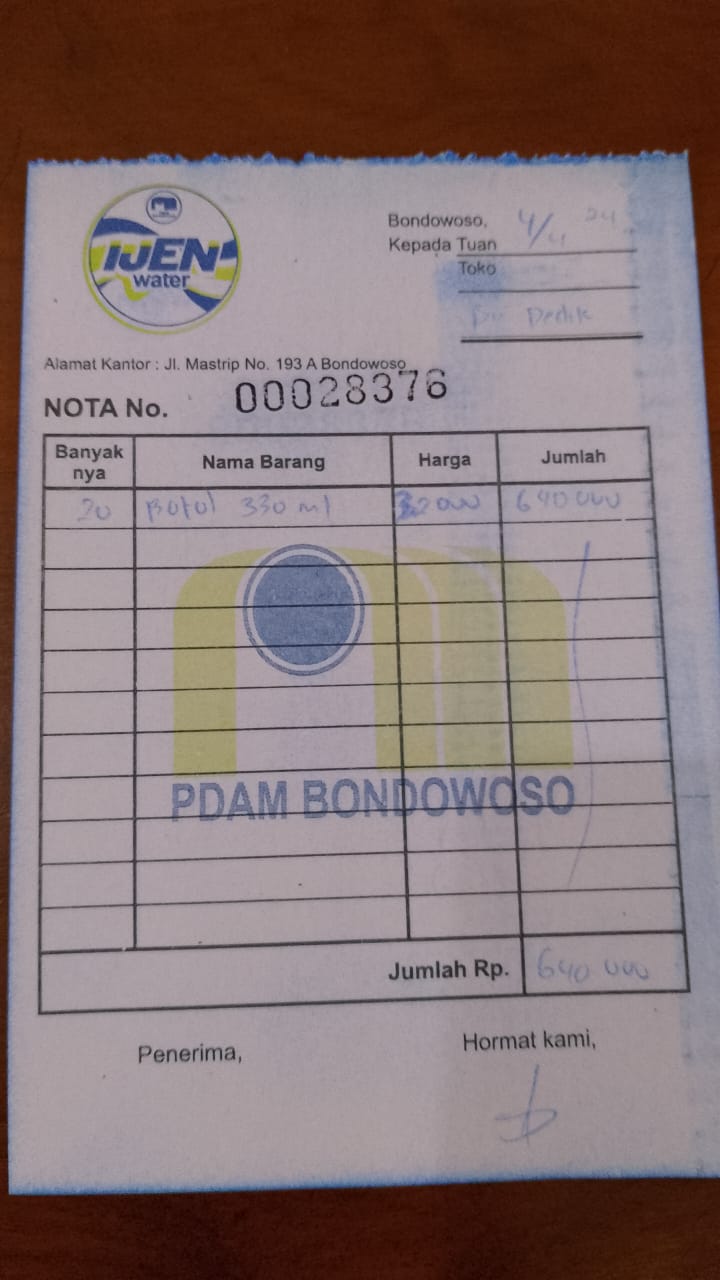 IJEN
water
Bondowoso, 4/4 24
Kepada Tuan
Toko
Bu Dedik
Alamat Kantor : Jl. Mastrip No. 193 A Bondowoso
NOTA No. 00028376
Banyak nya Nama Barang Harga Jumlah
20 Botol 330 ml 32000 640 000
PDAM BONDOWOSO
Jumlah Rp. 640 000
Penerima, Hormat kami,